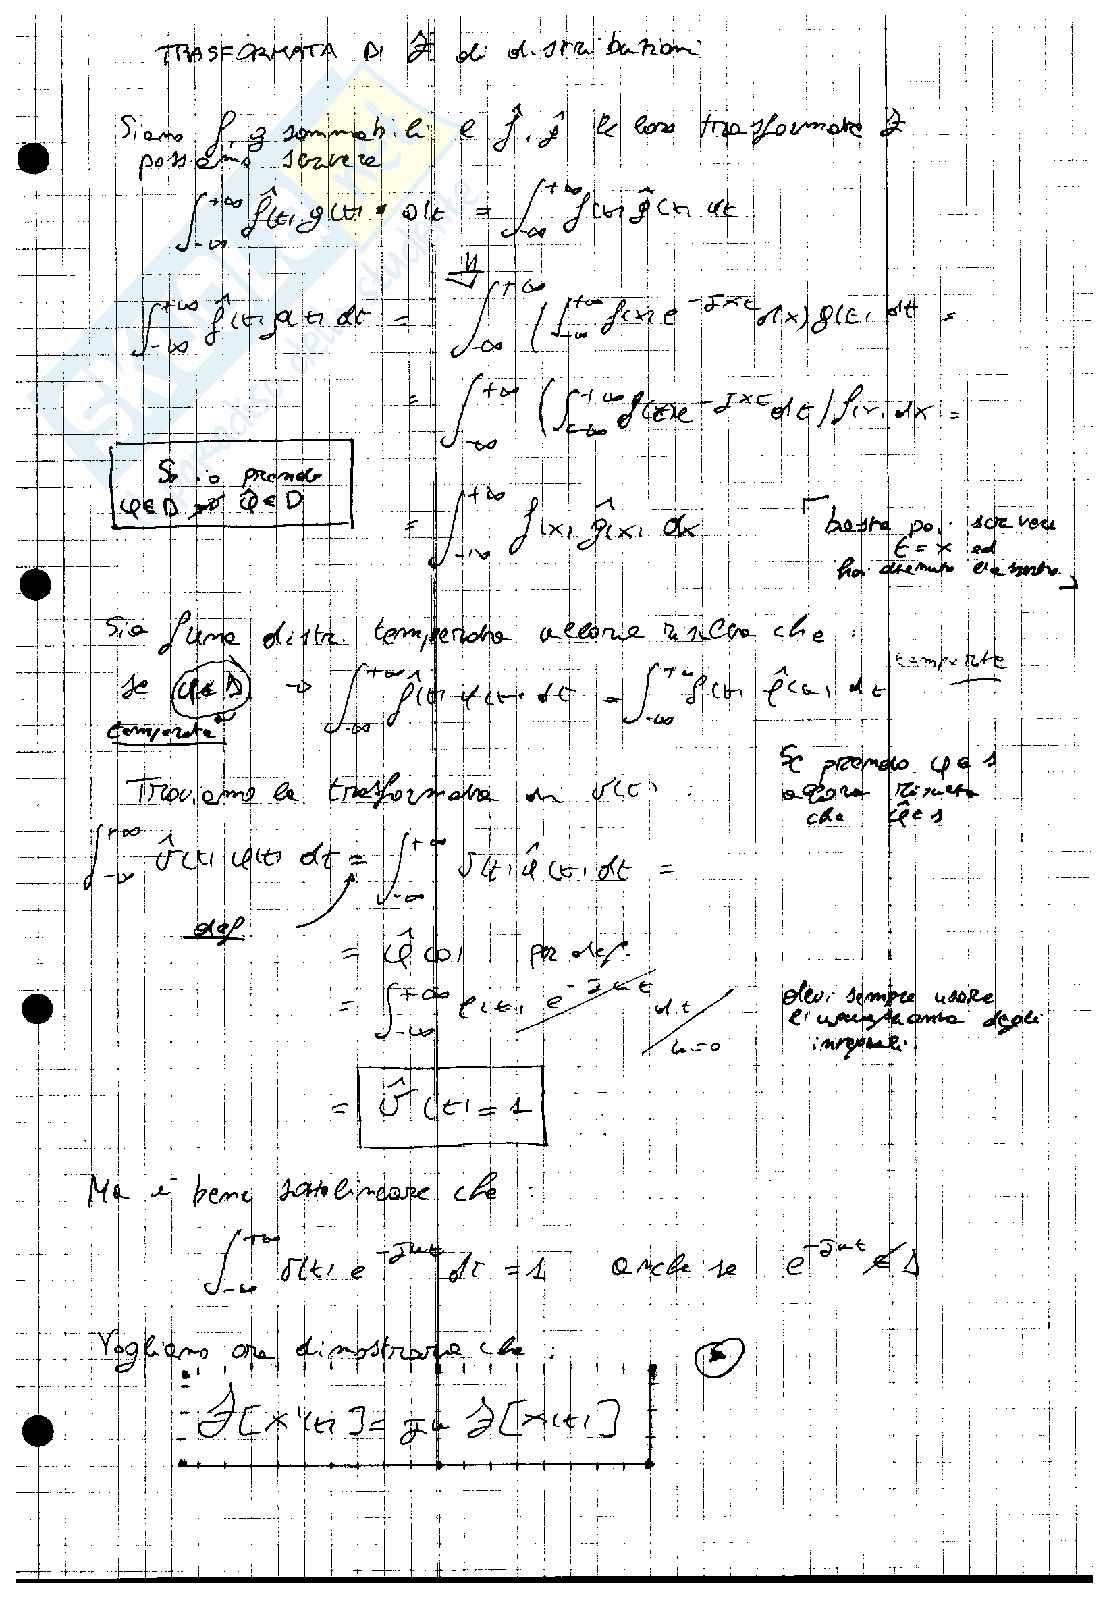 TRASFORMATA DI F di distribuzioni
Siano f, g sommabili e f̂, ĝ le loro trasformate F
possiamo scrivere
∫_{-∞}^{+∞} f̂(t) g(t) · dt = ∫_{-∞}^{+∞} f(t) ĝ(t) dt
∫_{-∞}^{+∞} f̂(t) g(t) dt = ∫_{-∞}^{+∞} (∫_{-∞}^{+∞} f(x) e^{-jxt} dx) g(t) dt =
= ∫_{-∞}^{+∞} (∫_{-∞}^{+∞} g(t) e^{-jxt} dt) f(x) dx =
Se io prendo
φ∈D ⇏ φ̂∈D
= ∫_{-∞}^{+∞} f(x) ĝ(x) dx
basta poi scrivere
t = x ed
hai ottenuto
Sia f una distr temperata allora risulta che :
se φ∈S → ∫_{-∞}^{+∞} f̂(t) φ(t) dt = ∫_{-∞}^{+∞} f(t) φ̂(t) dt
temperata
Se prendo φ∈S
allora risulta
che φ̂∈S
Troviamo la trasformata di δ(t) :
∫_{-∞}^{+∞} δ̂(t) φ(t) dt = ∫_{-∞}^{+∞} δ(t) φ̂(t) dt =
def
= φ̂(0) per def.
= ∫_{-∞}^{+∞} φ(t) e^{-jut} dt / u=0
devi sempre usare
l'uguaglianza degli
integrali
= δ̂(t) = 1
Ma è bene sottolineare che :
∫_{-∞}^{+∞} δ(t) e^{-jut} dt = 1 anche se e^{-jut} ∉ S
Vogliamo ora dimostrare che : *
F[x'(t)] = ju F[x(t)]